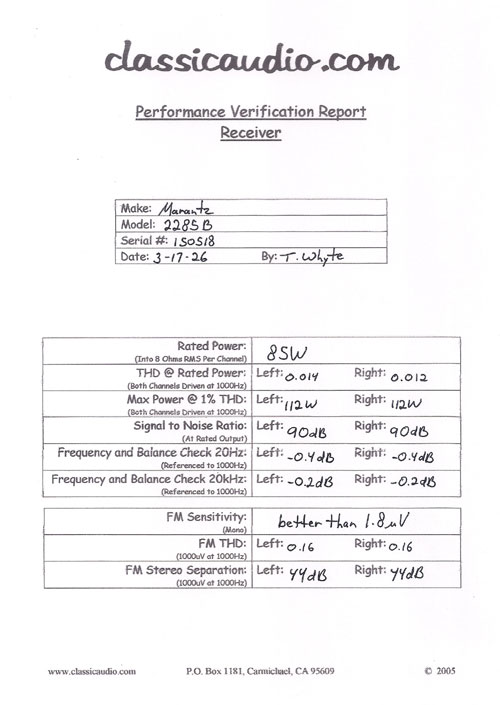 classicaudio.com
Performance Verification Report
Receiver
Make: Marantz
Model: 2285B
Serial #: 150518
Date: 3-17-26 By: T. Whyte
Rated Power: 85W
(Into 8 Ohms RMS Per Channel)
THD @ Rated Power: Left: 0.014 Right: 0.012
(Both Channels Driven at 1000Hz)
Max Power @ 1% THD: Left: 112W Right: 112W
(Both Channels Driven at 1000Hz)
Signal to Noise Ratio: Left: 90dB Right: 90dB
(At Rated Output)
Frequency and Balance Check 20Hz: Left: -0.4dB Right: -0.4dB
(Referenced to 1000Hz)
Frequency and Balance Check 20kHz: Left: -0.2dB Right: -0.2dB
(Referenced to 1000Hz)
FM Sensitivity: better than 1.8uV
(Mono)
FM THD: Left: 0.16 Right: 0.16
(1000uV at 1000Hz)
FM Stereo Separation: Left: 44dB Right: 44dB
(1000uV at 1000Hz)
www.classicaudio.com P.O. Box 1181, Carmichael, CA 95609 © 2005